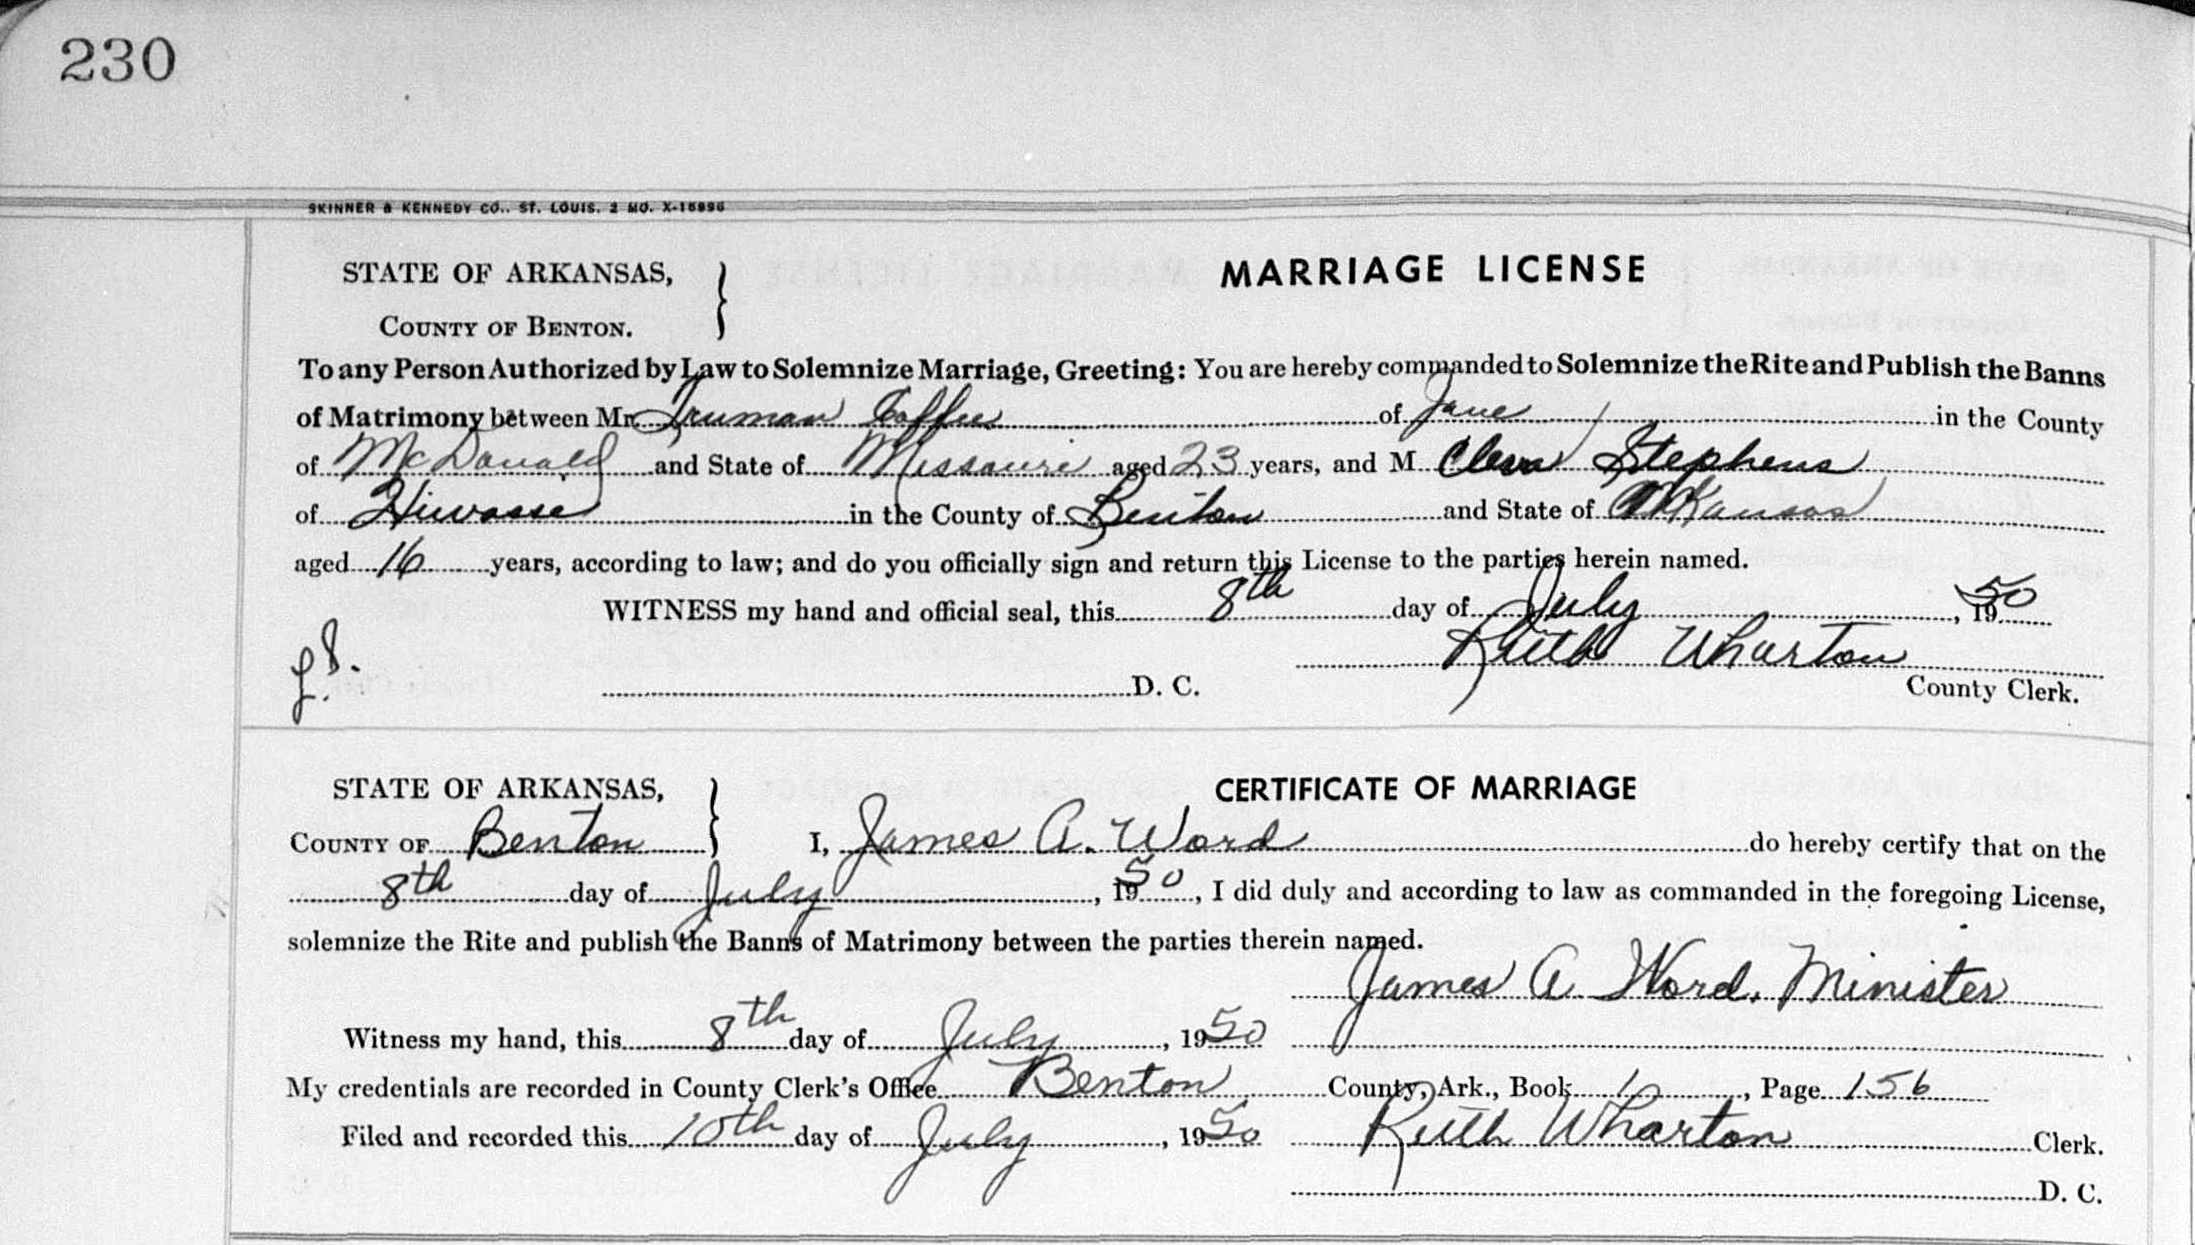 230
SKINNER & KENNEDY CO., ST. LOUIS. 2 MO. X-15996
STATE OF ARKANSAS, } MARRIAGE LICENSE
COUNTY OF BENTON.
To any Person Authorized by Law to Solemnize Marriage, Greeting: You are hereby commanded to Solemnize the Rite and Publish the Banns
of Matrimony between Mr. Truman Coffee of Jane in the County
of McDonald and State of Missouri aged 23 years, and M Cleva Stephens
of Hiwasse in the County of Benton and State of Arkansas
aged 16 years, according to law; and do you officially sign and return this License to the parties herein named.
WITNESS my hand and official seal, this 8th day of July, 1950
Ruth Wharton
L.S. D. C. County Clerk.
STATE OF ARKANSAS, } CERTIFICATE OF MARRIAGE
COUNTY OF Benton I, James A. Word do hereby certify that on the
8th day of July, 1950, I did duly and according to law as commanded in the foregoing License,
solemnize the Rite and publish the Banns of Matrimony between the parties therein named.
James A Word, Minister
Witness my hand, this 8th day of July, 1950
My credentials are recorded in County Clerk's Office Benton County, Ark., Book, Page 156
Filed and recorded this 10th day of July, 1950 Ruth Wharton Clerk.
D. C.